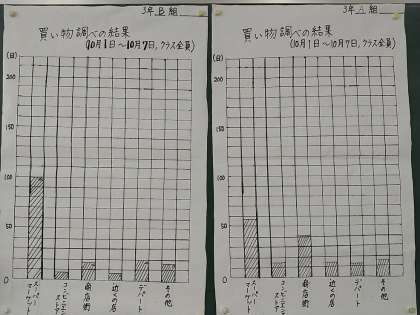 3年 B 組
買い物調べの結果
(10月1日〜10月7日,クラス全員)
(回)
200
150
100
50
0
スーパーマーケット
コンビニエンスストア
商店街
近くの店
デパート
その他
3年 A 組
買い物調べの結果
(10月1日〜10月7日,クラス全員)
(回)
200
150
100
50
0
スーパーマーケット
コンビニエンスストア
商店街
近くの店
デパート
その他